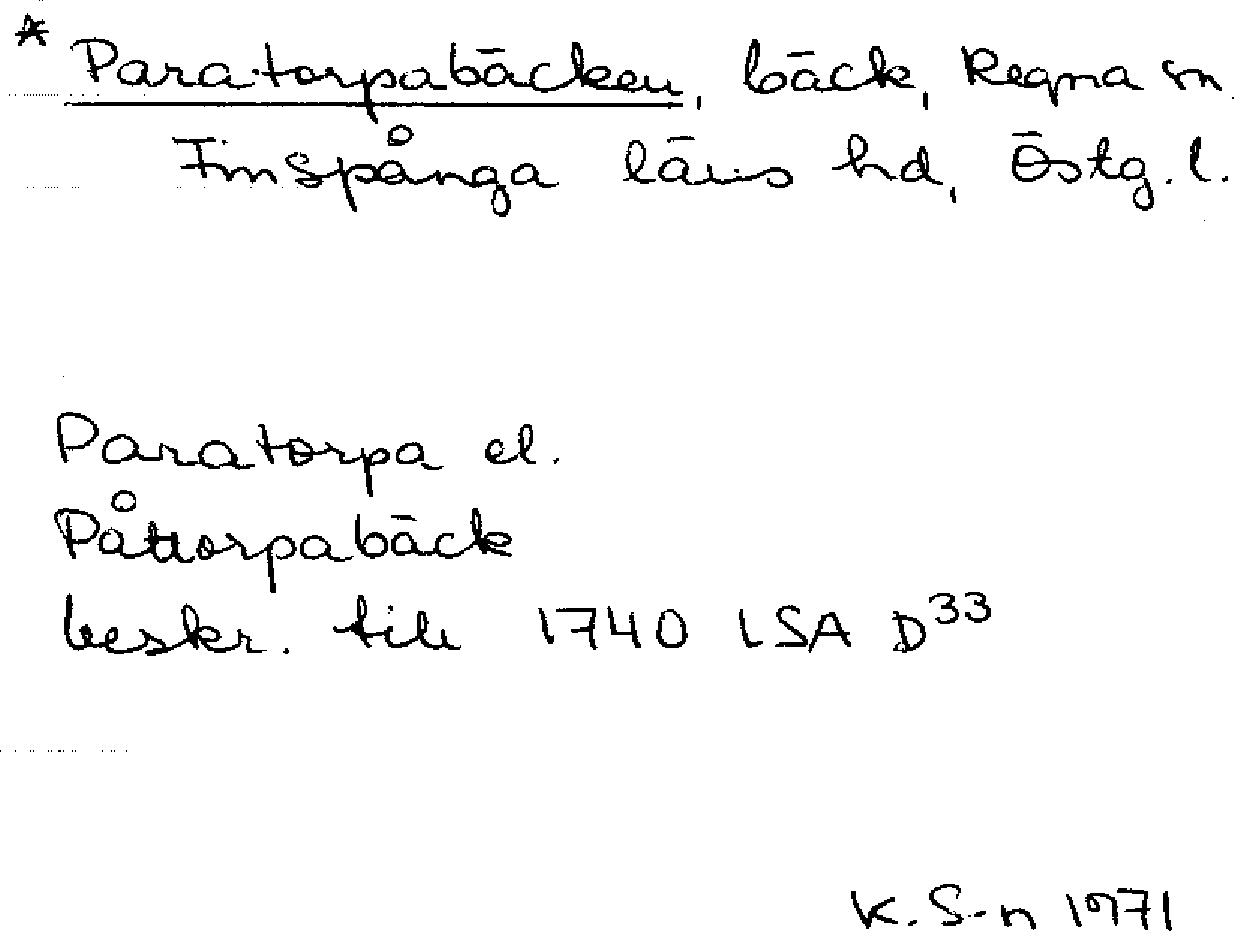 * Paratorpabäcken, bäck, Regna sn.
Finspånga läns hd, Östg. l.
Paratorpa el.
Påttorpabäck
beskr. till 1740 LSA D33
K. S-n 1971